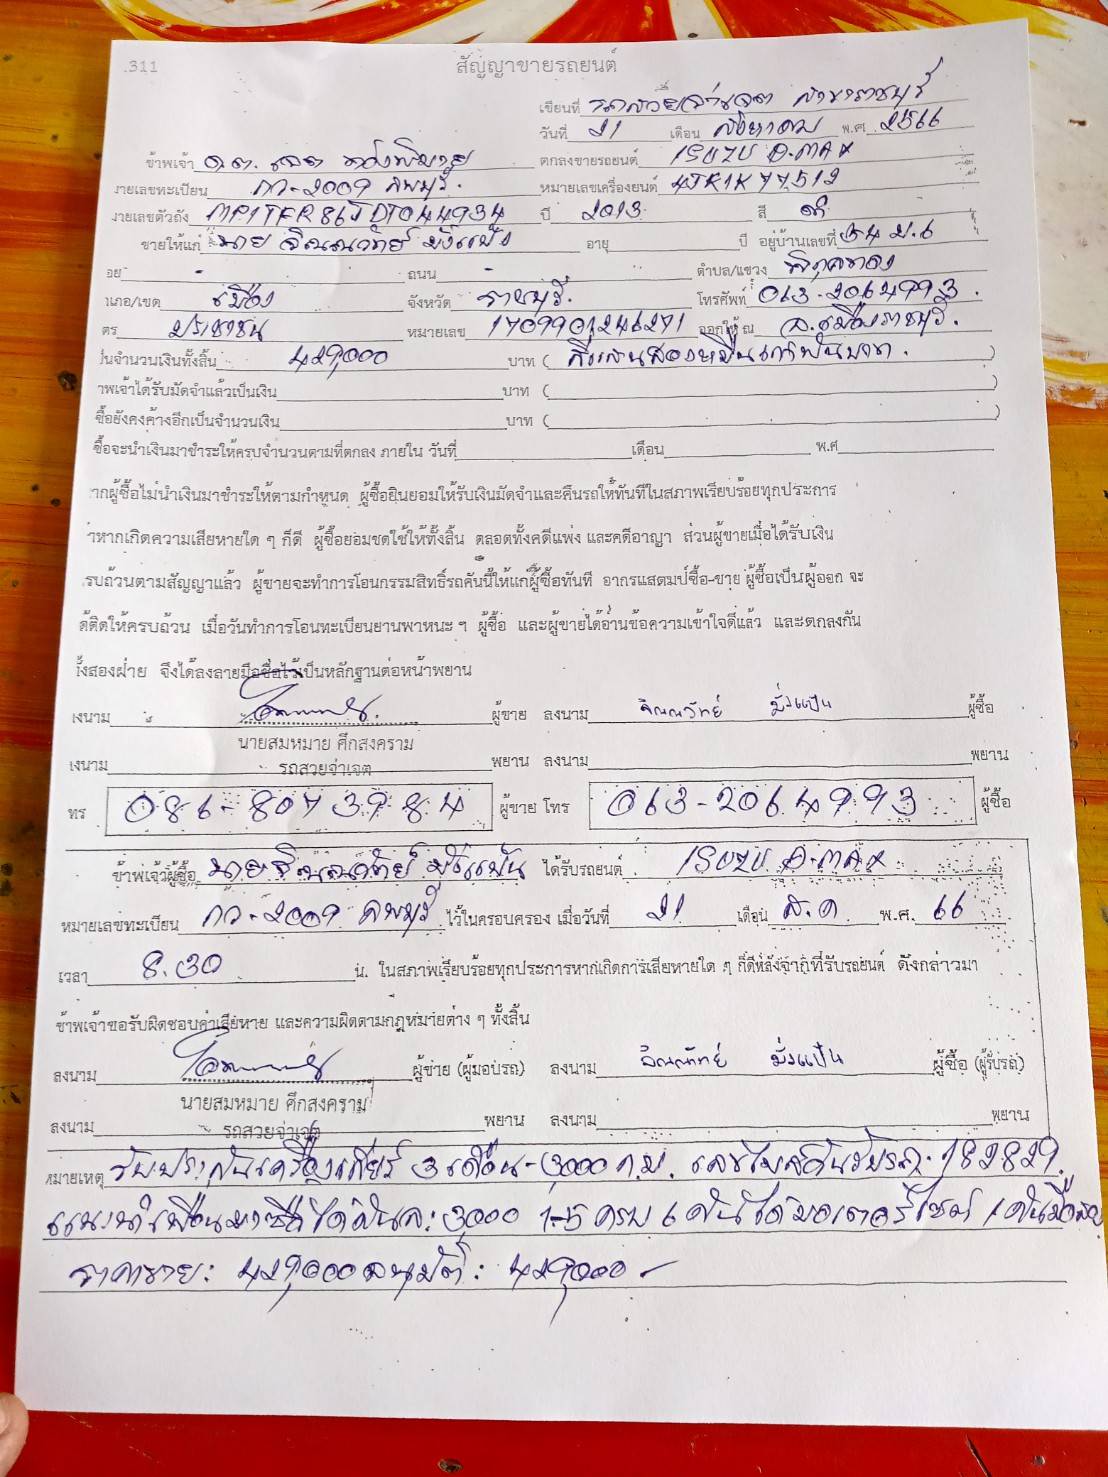 .311
สัญญาขายรถยนต์
เขียนที่ รถสวยจ่าเจต สาขาราชบุรี
วันที่ 21 เดือน สิงหาคม พ.ศ. 2566
ข้าพเจ้า ด.ต. เจต ตกลงขายรถยนต์ ISUZU D-MAX
ายเลขทะเบียน กว-2009 ลพบุรี. หมายเลขเครื่องยนต์ 4JK1K77512
ายเลขตัวถัง MP1TFR86JDT044934 ปี 2013 สี ดำ
ขายให้แก่ นาย จิณณวัทย์ มั่งแป้น อายุ ปี อยู่บ้านเลขที่ 34 ม.6
อย ถนน ตำบล/แขวง พิกุลทอง
าเภอ/เขต เมือง จังหวัด ราชบุรี. โทรศัพท์ 063-2064993.
ตร ประชาชน หมายเลข 1709901246271 ออกให้ ณ อ.เมืองราชบุรี.
ป็นจำนวนเงินทั้งสิ้น 429,000 บาท ( สี่แสนสองหมื่นเก้าพันบาท. )
าพเจ้าได้รับมัดจำแล้วเป็นเงิน บาท ( )
ซื้อยังคงค้างอีกเป็นจำนวนเงิน บาท ( )
ซื้อจะนำเงินมาชำระให้ครบจำนวนตามที่ตกลง ภายใน วันที่ เดือน พ.ศ
ากผู้ซื้อไม่นำเงินมาชำระให้ตามกำหนด ผู้ซื้อยินยอมให้รับเงินมัดจำและคืนรถให้ทันทีในสภาพเรียบร้อยทุกประการ
าหากเกิดความเสียหายใด ๆ ก็ดี ผู้ซื้อยอมชดใช้ให้ทั้งสิ้น ตลอดทั้งคดีแพ่ง และคดีอาญา ส่วนผู้ขายเมื่อได้รับเงิน
รบถ้วนตามสัญญาแล้ว ผู้ขายจะทำการโอนกรรมสิทธิ์รถคันนี้ให้แก่ผู้ซื้อทันที อากรแสตมป์ซื้อ-ขาย ผู้ซื้อเป็นผู้ออก จะ
ด้ติดให้ครบถ้วน เมื่อวันทำการโอนทะเบียนยานพาหนะ ฯ ผู้ซื้อ และผู้ขายได้อ่านข้อความเข้าใจดีแล้ว และตกลงกัน
ั้งสองฝ่าย จึงได้ลงลายมือชื่อไว้เป็นหลักฐานต่อหน้าพยาน
งนาม ผู้ขาย ลงนาม จิณณวัทย์ มั่งแป้น ผู้ซื้อ
นายสมหมาย ศึกสงคราม
งนาม รถสวยจ่าเจต พยาน ลงนาม พยาน
ทร 086-8073984 ผู้ขาย โทร 063-2064993 ผู้ซื้อ
ข้าพเจ้าผู้ซื้อ นายจิณณวัทย์ มั่งแป้น ได้รับรถยนต์ ISUZU D-MAX
หมายเลขทะเบียน กว-2009 ลพบุรี ไว้ในครอบครอง เมื่อวันที่ 21 เดือน ส.ค พ.ศ. 66
เวลา 8.30 น. ในสภาพเรียบร้อยทุกประการหากเกิดการเสียหายใด ๆ ก็ดีหลังจากที่รับรถยนต์ ดังกล่าวมา
ข้าพเจ้าขอรับผิดชอบค่าเสียหาย และความผิดตามกฎหมายต่าง ๆ ทั้งสิ้น
ลงนาม ผู้ขาย (ผู้มอบรถ) ลงนาม จิณณวัทย์ มั่งแป้น ผู้ซื้อ (ผู้รับรถ)
นายสมหมาย ศึกสงคราม
ลงนาม รถสวยจ่าเจต พยาน ลงนาม พยาน
หมายเหตุ รับประกันเครื่องเกียร์ 3 เดือน-3,000 ก.ม. เลขไมล์วันรับรถ 182829.
แนะนำเพื่อนมาซื้อได้คันละ 3000 1-5 ครบ 6 คันได้มอเตอร์ไซค์ 1 คัน
ราคาขาย: 429,000 อนุมัติ: 429,000